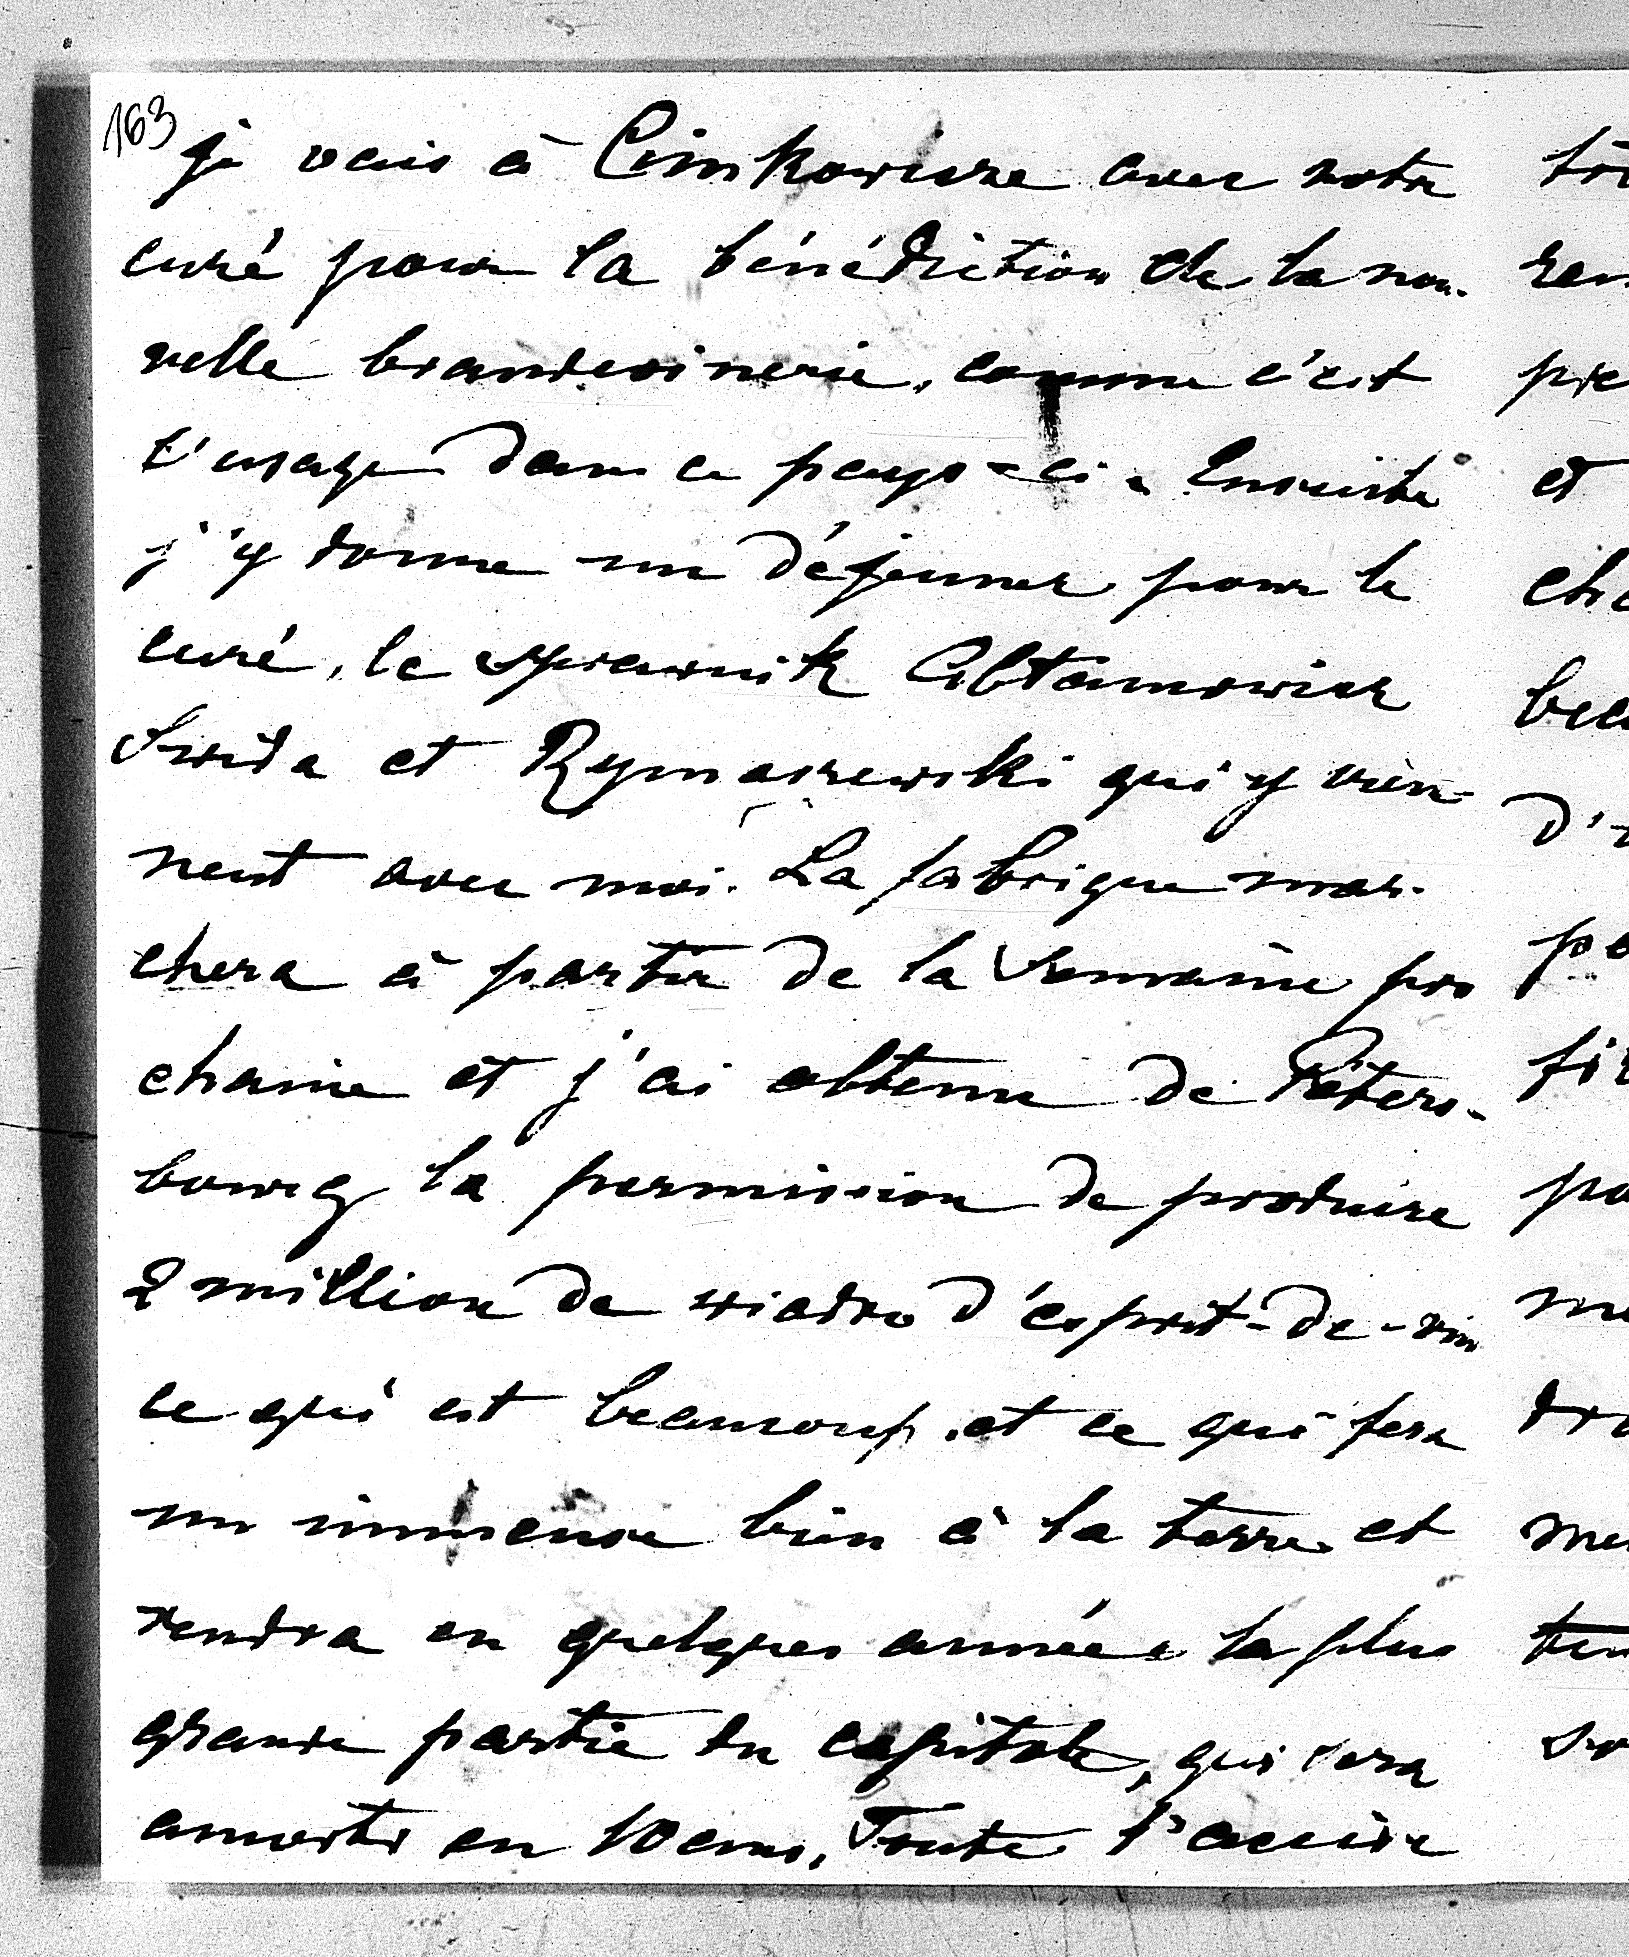 163
je vais à Cimkowicze avec notre
curé pour la bénédiction de la nou-
velle brandevinerie, comme c'est
l'usage dans ce pays-ci. Ensuite
j'y donne un déjeuner pour le
curé, le sprawnik Abłamowicz
Swida et Rymaszewski qui y vien-
nent avec moi. La fabrique mar-
chera à partir de la semaine pro
chaine et j'ai obtenu de Péters-
bourg la permission de produire
2 million de wiadro d'esprit-de-vin
ce qui est beaucoup et ce qui fera
un immense bien à la terre et
rendra en quelques années la plus
grande partie du capitale, qui sera
amorti en 10 ans. Toute l'accise
et